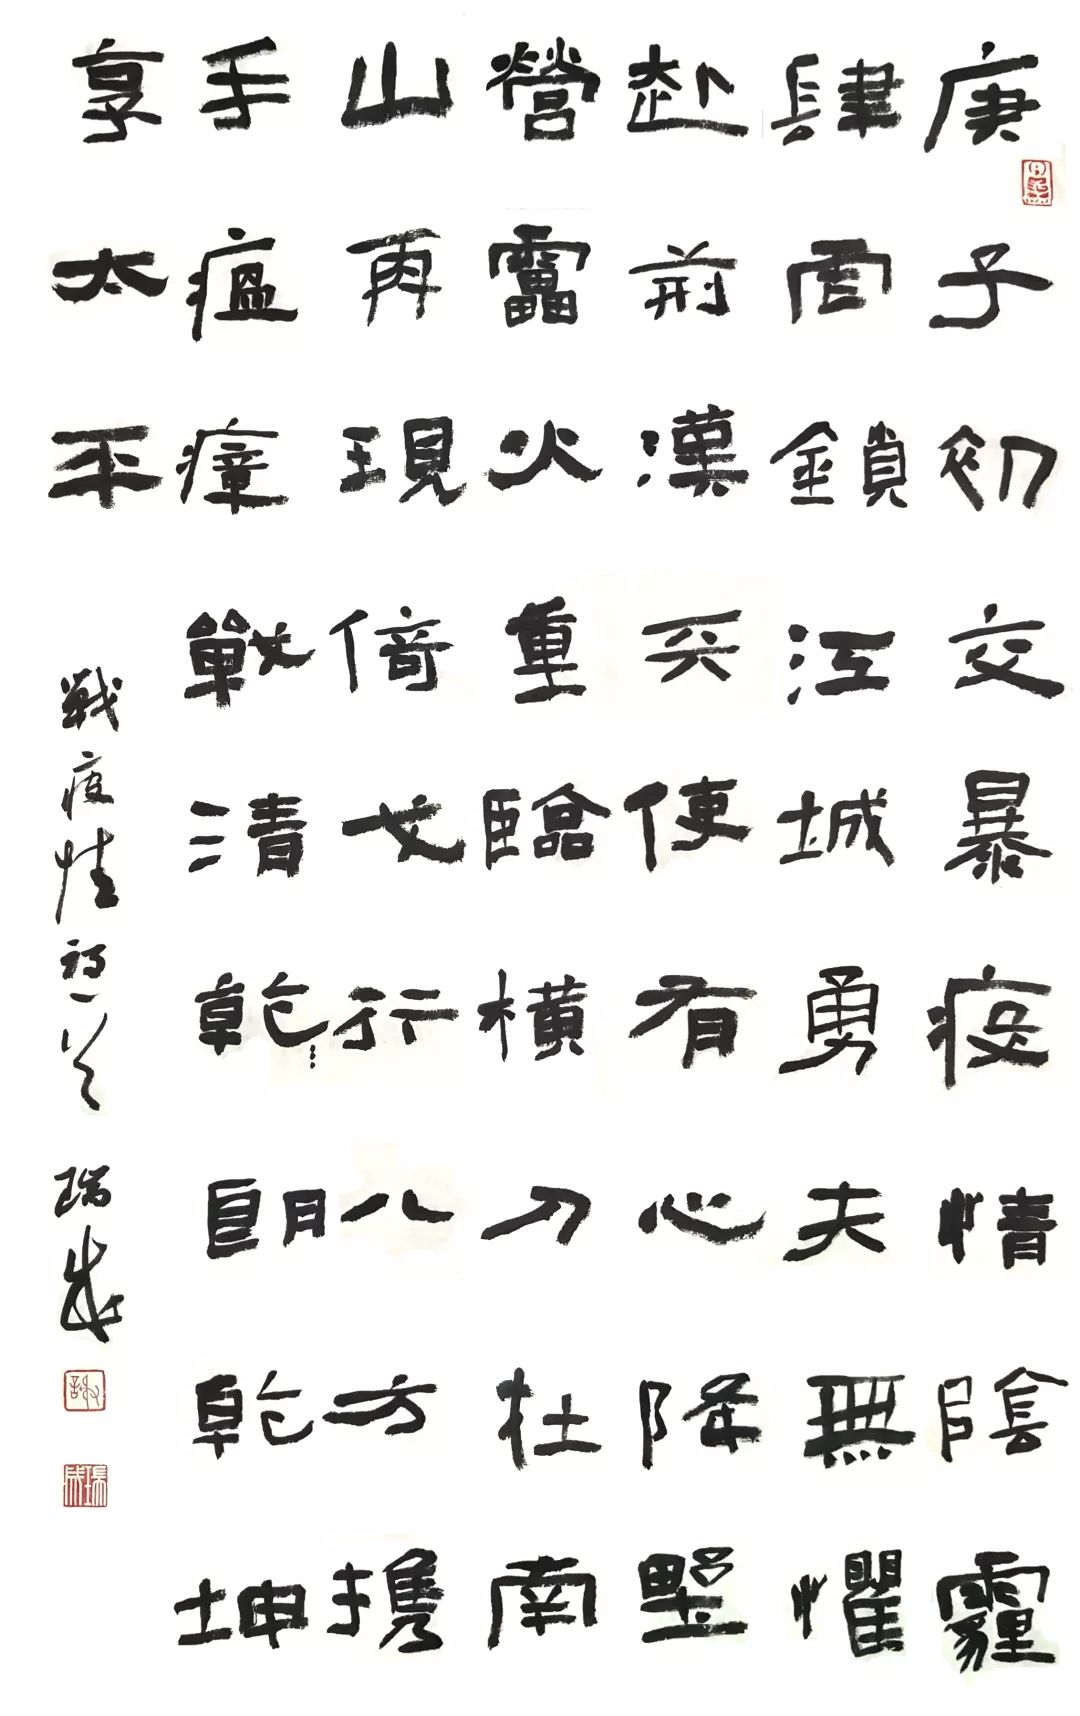 庚子初交暴疫情陰霾
肆虐鎖江城勇夫無懼
赴前漢天使有心降墅
營靁火重臨橫刀杜南
山再現倚戈行八方携
手瘟瘴戰清乾朗乾坤
享太平
戰疫情詩一首 瑞成
瑞成